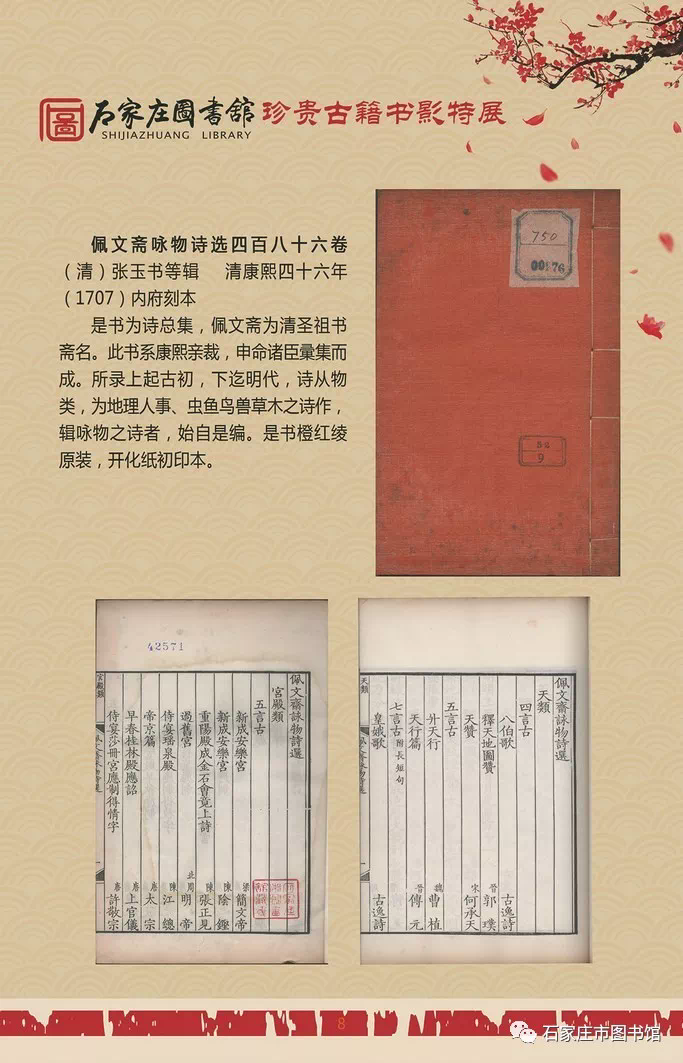 石家庄圖書舘 珍贵古籍书影特展
SHIJIAZHUANG LIBRARY
佩文斋咏物诗选四百八十六卷
（清）张玉书等辑 清康熙四十六年
（1707）内府刻本
是书为诗总集，佩文斋为清圣祖书
斋名。此书系康熙亲裁，申命诸臣彙集而
成。所录上起古初，下迄明代，诗从物
类，为地理人事、虫鱼鸟兽草木之诗作，
辑咏物之诗者，始自是编。是书橙红绫
原装，开化纸初印本。
750
00576
52
9
42571
佩文齋詠物詩選
宮殿類
五言古
新成安樂宮 梁 簡文帝
新成安樂宮 陳 陰鏗
重陽殿成金石會竟上詩 陳 張正見
過舊宮 北周 明帝
侍宴瑤泉殿 陳 江總
帝京篇 唐 太宗
早春桂林殿應詔 唐 上官儀
侍宴莎冊宮應制得情字 唐 許敬宗
宮殿類
佩文齋詠物詩選
天類
四言古
八伯歌 古逸詩
釋天地圖贊 晉 郭璞
天贊 宋 何承天
五言古
升天行 魏 曹植
天行篇 晉 傅元
七言古 附長短句
皇娥歌 古逸詩
天類
8
石家庄市图书馆